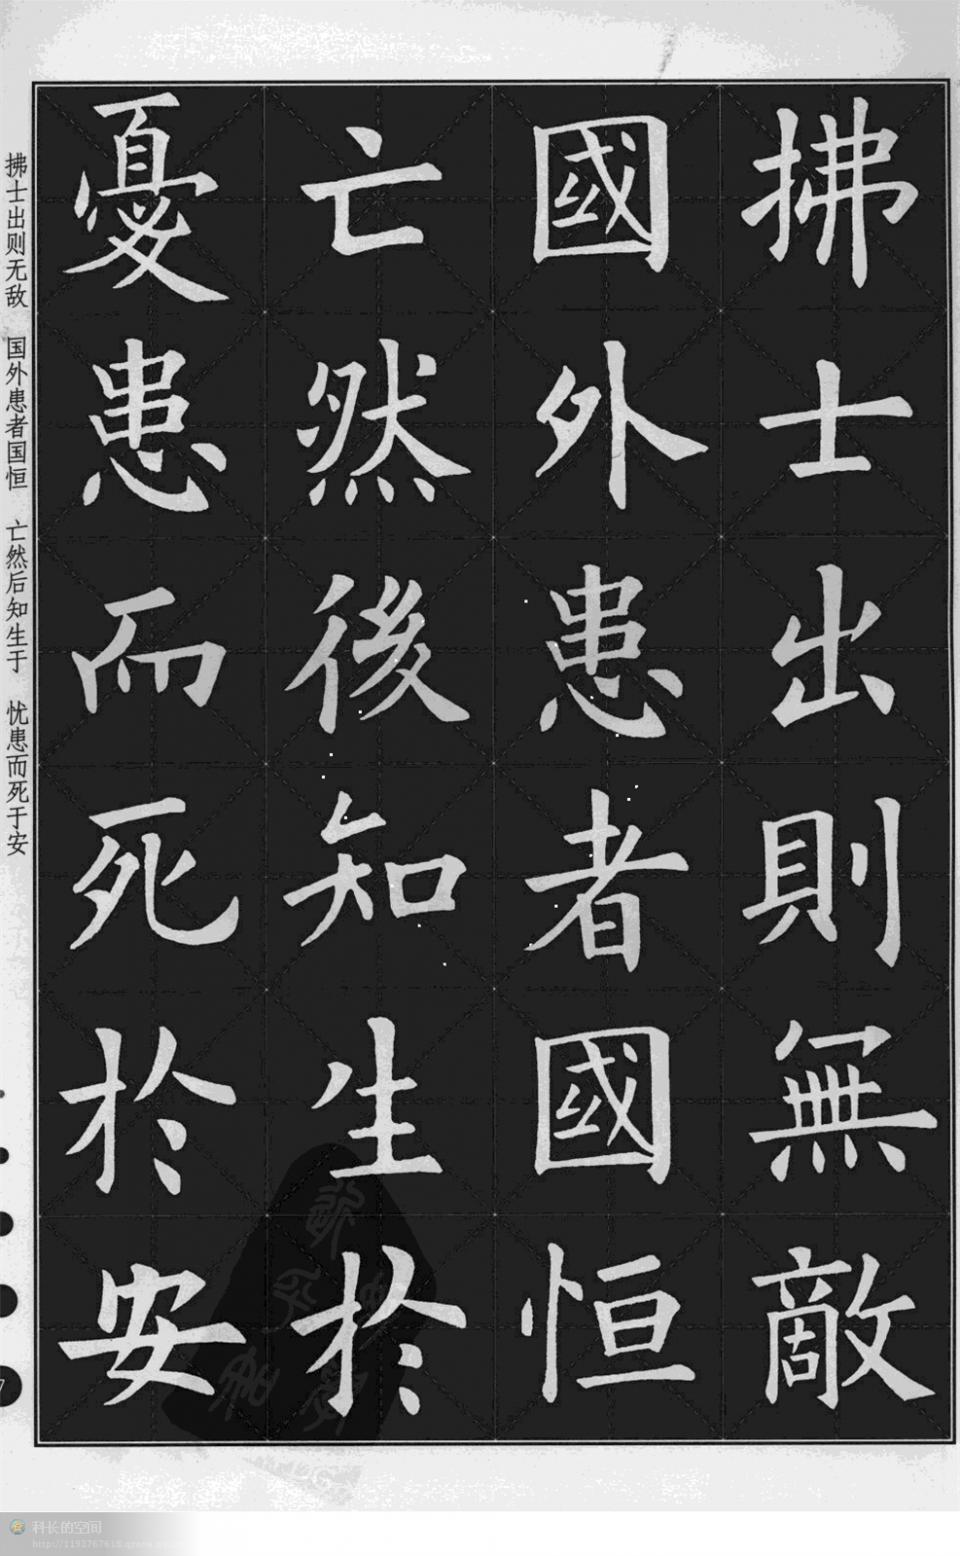 拂士出則無敵
國外患者國恒
亡然後知生於
憂患而死於安
拂士出则无敌 国外患者国恒 亡然后知生于 忧患而死于安
科长的空间